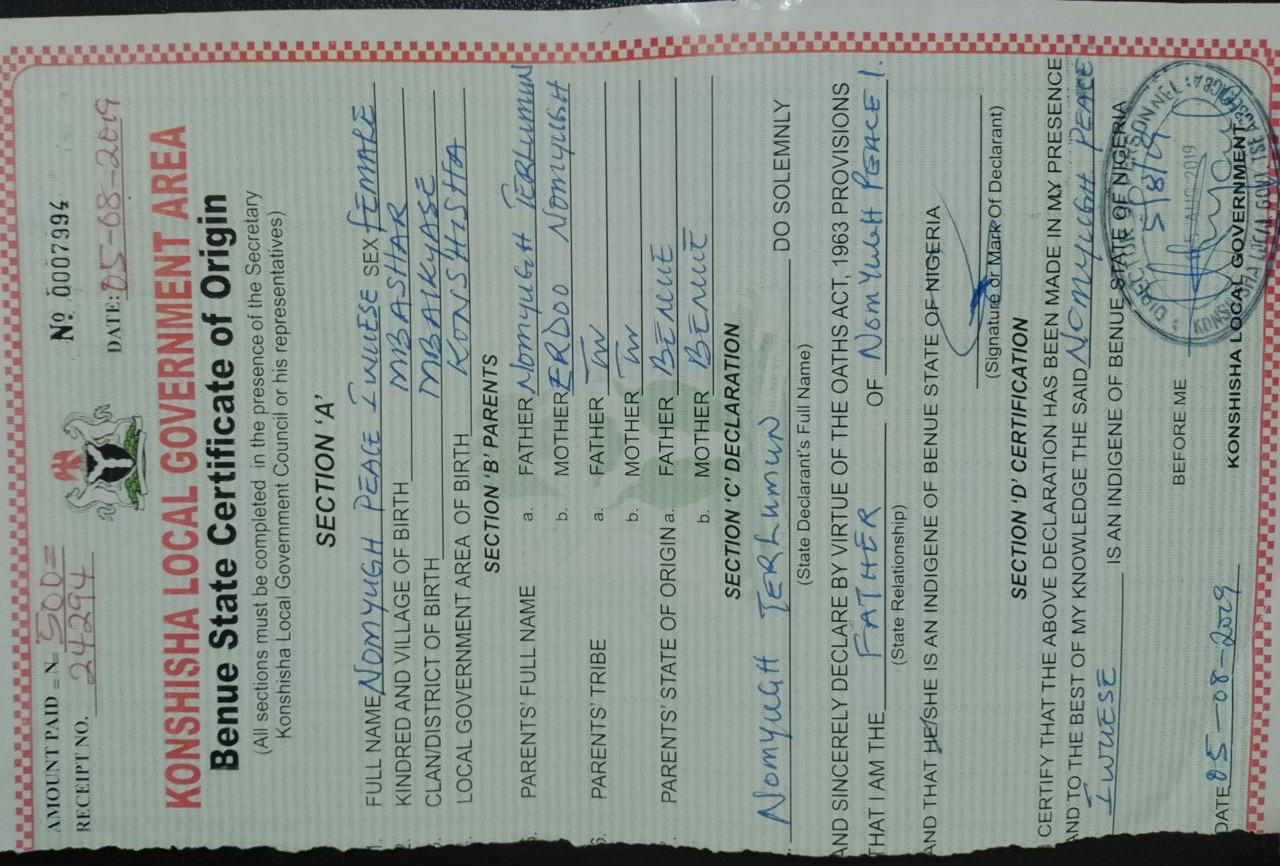 AMOUNT PAID = N 500=
RECEIPT NO. 24294
No 0007994
DATE: 05-08-2019
KONSHISHA LOCAL GOVERNMENT AREA
Benue State Certificate of Origin
(All sections must be completed in the presence of the Secretary
Konshisha Local Government Council or his representatives)
SECTION 'A'
FULL NAME NOMYUGH PEACE IWUESE SEX FEMALE
KINDRED AND VILLAGE OF BIRTH MBASHAR
CLAN/DISTRICT OF BIRTH MBAIKYASE
LOCAL GOVERNMENT AREA OF BIRTH KONSHISHA
SECTION 'B' PARENTS
PARENTS' FULL NAME a. FATHER NOMYUGH TERLUMUN
b. MOTHER ERDOO NOMYUGH
PARENTS' TRIBE a. FATHER TIV
b. MOTHER TIV
PARENTS' STATE OF ORIGIN a. FATHER BENUE
b. MOTHER BENUE
SECTION 'C' DECLARATION
NOMYUGH TERLUMUN DO SOLEMNLY
(State Declarant's Full Name)
AND SINCERELY DECLARE BY VIRTUE OF THE OATHS ACT, 1963 PROVISIONS
THAT I AM THE FATHER OF NOMYUGH PEACE I.
(State Relationship)
AND THAT HE/SHE IS AN INDIGENE OF BENUE STATE OF NIGERIA
(Signature or Mark Of Declarant)
SECTION 'D' CERTIFICATION
CERTIFY THAT THE ABOVE DECLARATION HAS BEEN MADE IN MY PRESENCE
AND TO THE BEST OF MY KNOWLEDGE THE SAID NOMYUGH PEACE
IWUESE IS AN INDIGENE OF BENUE STATE OF NIGERIA
BEFORE ME 5/8/19
AUG 2019
DATE 05-08-2019 KONSHISHA LOCAL GOVERNMENT